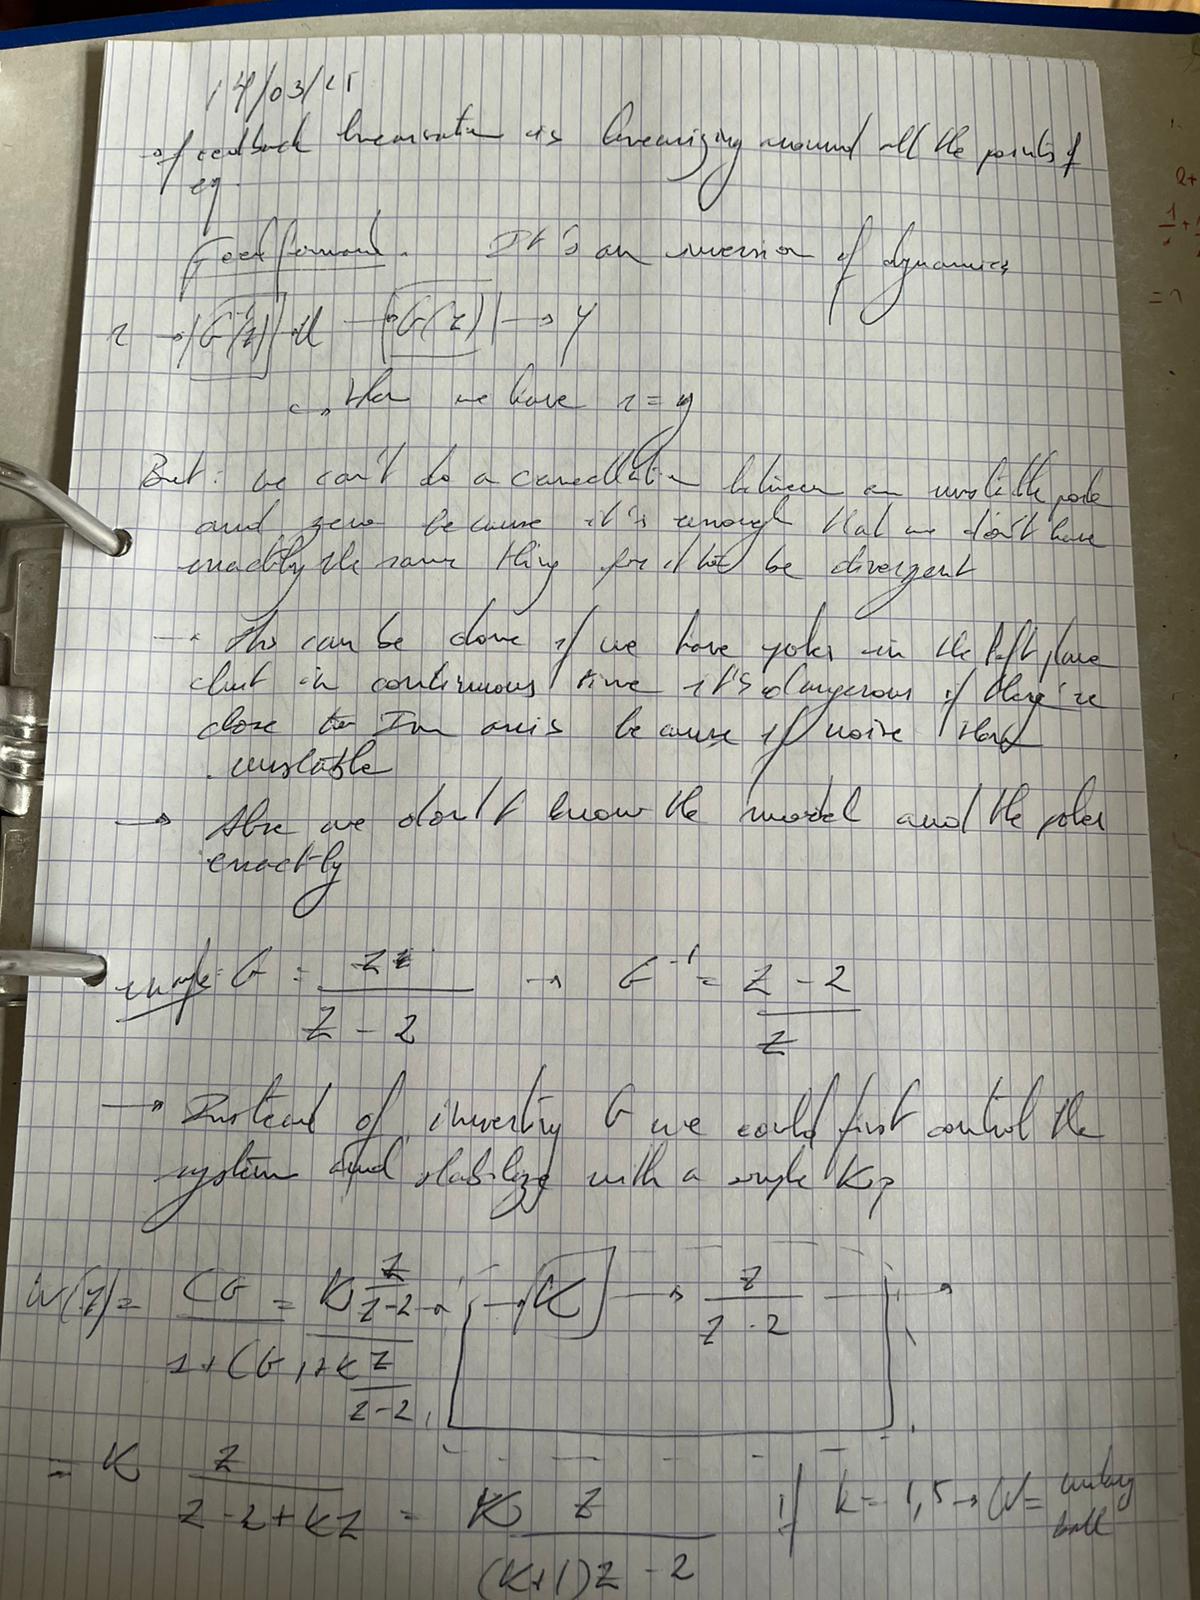 14/03/25
→ feedback linearisation is linearizing around all the points of
eq.
Feed forward. It's an inversion of dynamics
r → G⁻¹(z) → u → G(z) → y
↳ then we have r = y
But: we can't do a cancellation between an unstable pole
and zero because it's enough that we don't have
exactly the same thing for it to be divergent
→ this can be done if we have poles in the left plane
but in continuous time it's dangerous if they're
close to Im axis because if noise then
unstable
→ Also we don't know the model and the poles
exactly
G = z / (z - 2) → G⁻¹ = (z - 2) / z
→ Instead of inverting G we could first control the
system and stabilize with a simple Kp
W(z) = CG / (1 + CG) = K z/(z-2) / (1 + K z/(z-2)) → K → z / (z - 2) →
= K z / (z - 2 + Kz) = K z / ((K+1)z - 2) if K = 1,5 → W = unitary
ball